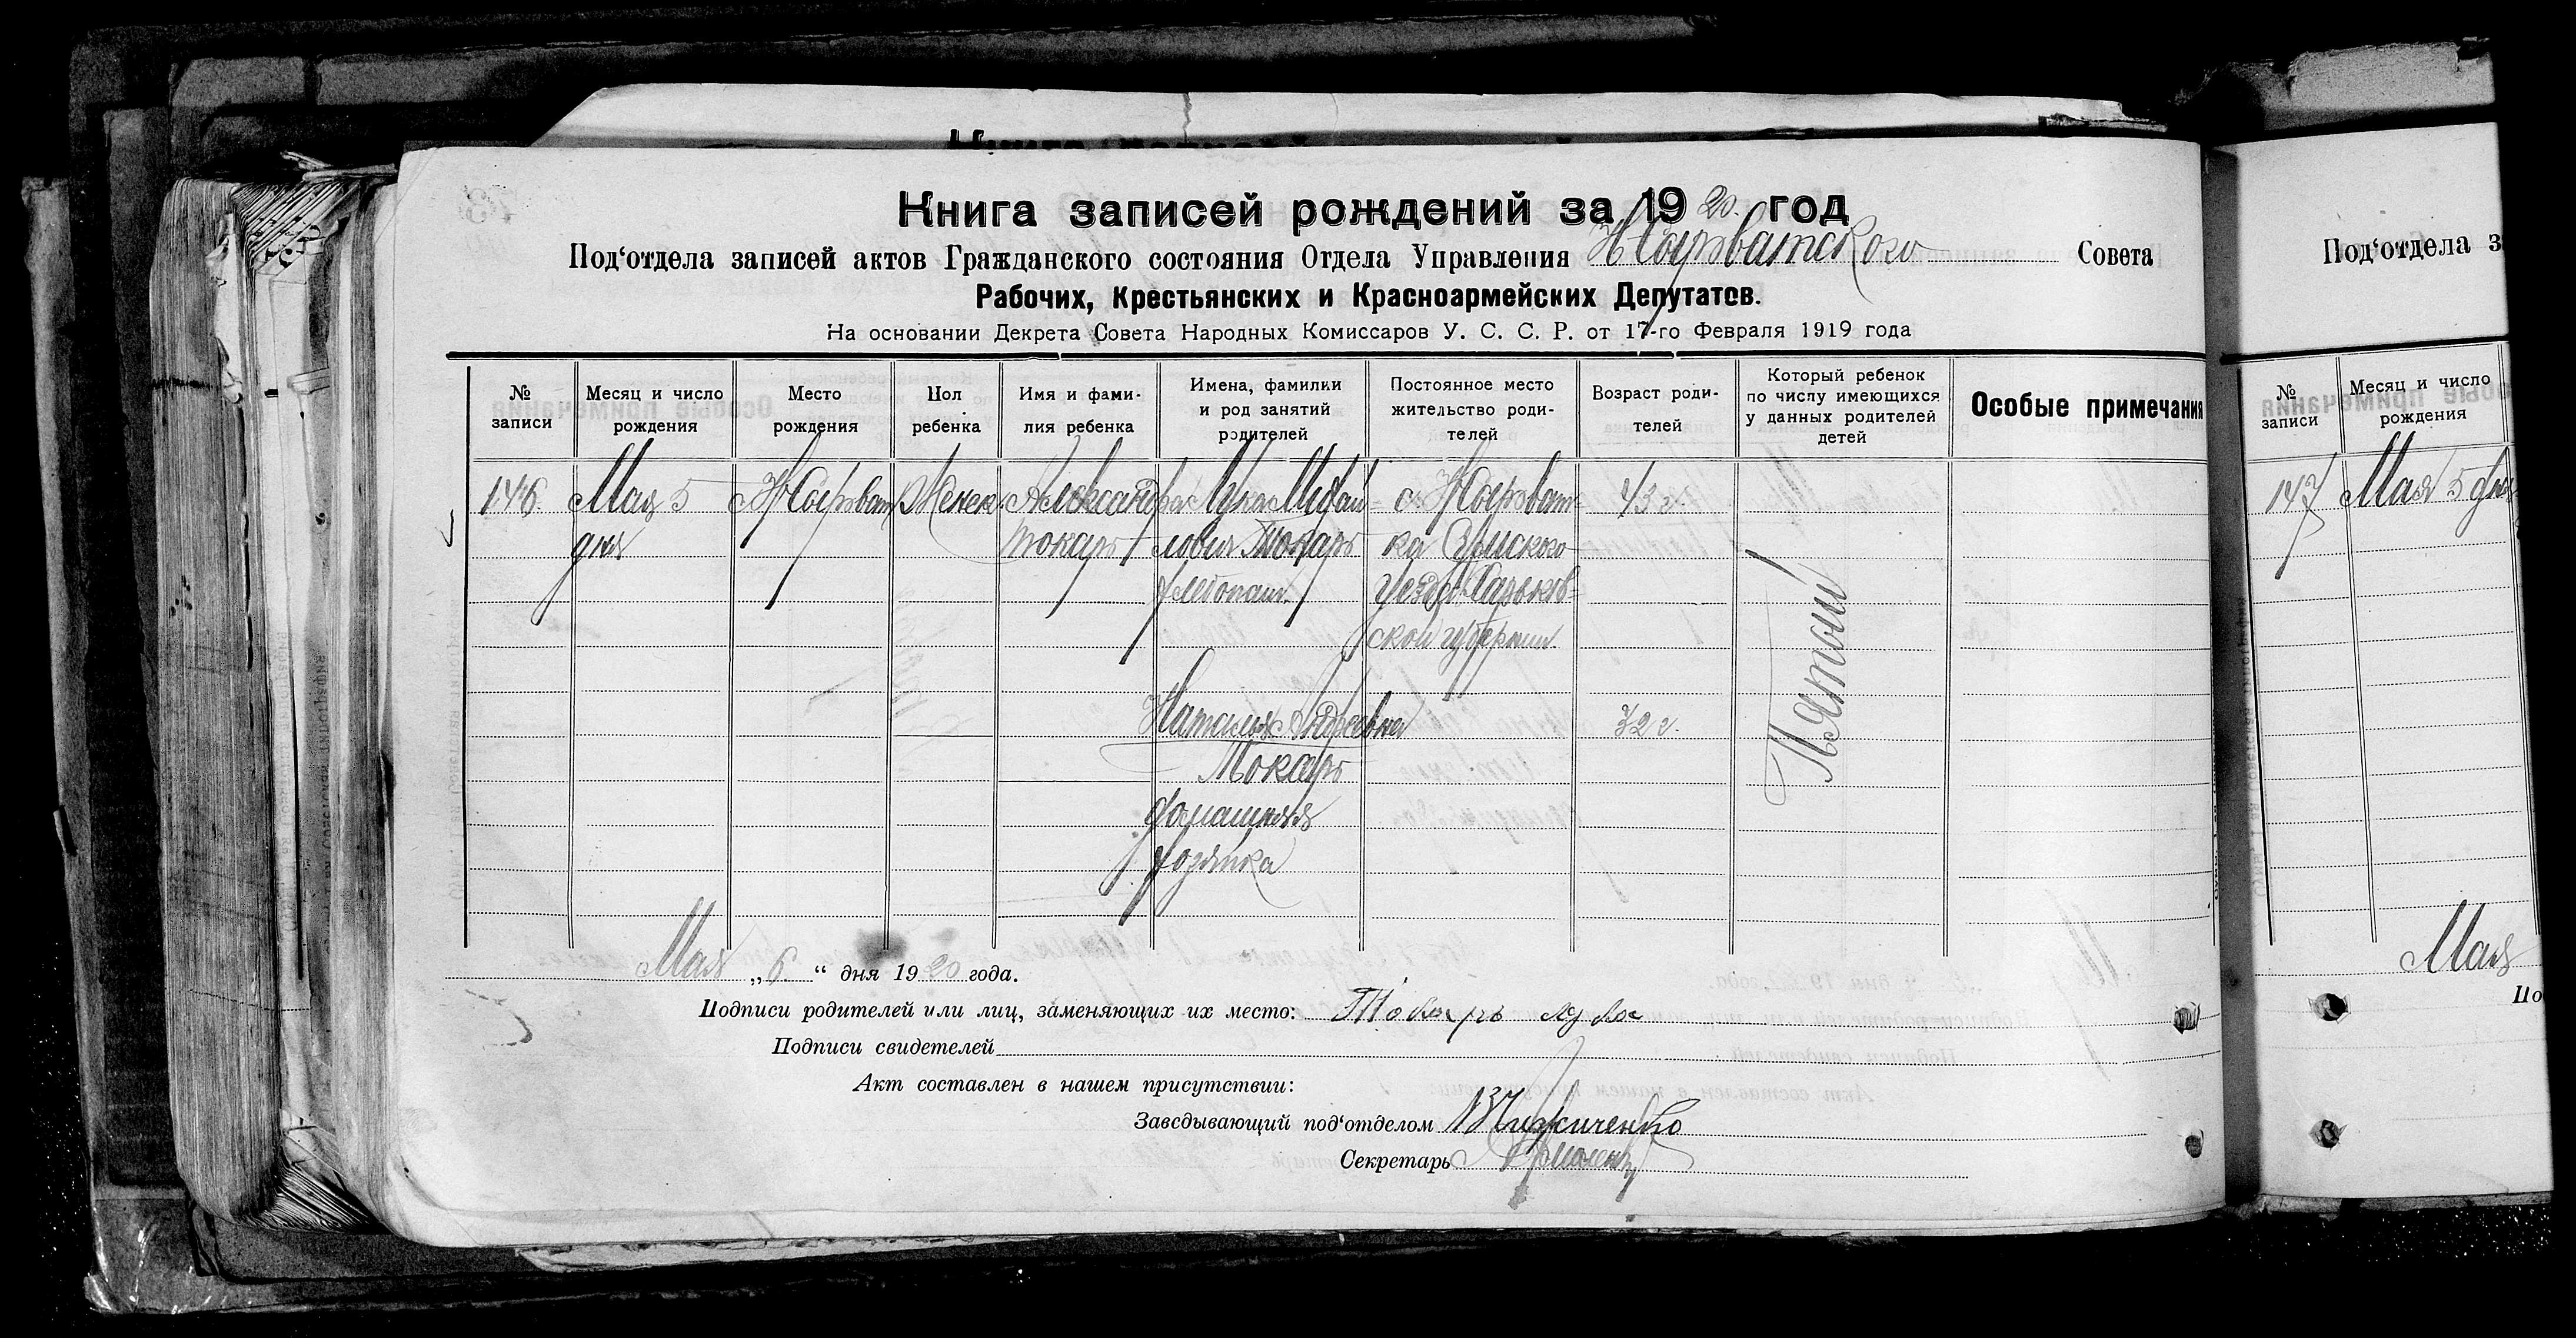 Книга записей рождений за 1920 год
Под‘отдела записей актов Гражданского состояния Отдела Управления Совета
Рабочих, Крестьянских и Красноармейских Депутатов.
На основании Декрета Совета Народных Комиссаров У. С. С. Р. от 17-го Февраля 1919 года
№ записи
Месяц и число рождения
Место рождения
Пол ребенка
Имя и фамилия ребенка
Имена, фамилии и род занятий родителей
Постоянное место жительство родителей
Возраст родителей
Который ребенок по числу имеющихся у данных родителей детей
Особые примечания
146. Мая 5 Женск. Александра Лука Михай= 43 г.
дня Токарь лович Токарь
хлебопаш. уезда Харьков=
ской губернии.
Наталья Андреевна 32 г.
Токарь
домашняя
хозяйка
Пятый
Мая „6“ дня 1920 года.
Подписи родителей или лиц, заменяющих их место: Токарь Лука
Подписи свидетелей
Акт составлен в нашем присутствии:
Заведывающий под‘отделом
Секретарь
Под‘отдела за
№ записи
Месяц и число рождения
147 Мая 5 дня
Мая
По